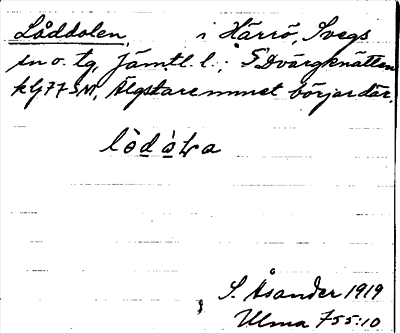 Låddalen, i Härrö, Svegs
sn o. tg, Jämtl. l.; S Dvärgknätten
kG77SM, Älgstaremmet börjar där.
lòd̲àLa
S. Åsander 1919
Ulma 755:10